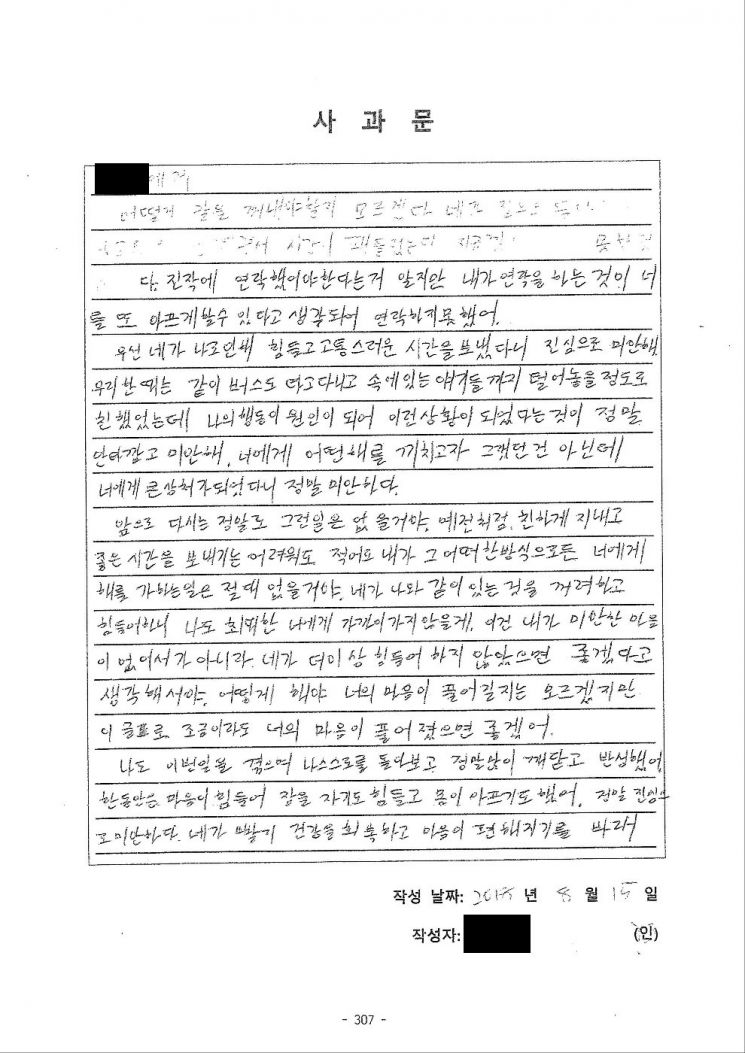 사 과 문
에게
어떻게 말을 꺼내야할지 모르겠다
시간이
연락했어야한다는거 알지만 내가 연락을 하는 것이 너
를 또 아프게 할수 있다고 생각되어 연락하지못했어.
우선 네가 나로인해 힘들고 고통스러운 시간을 보냈다니 진심으로 미안해
우리 한 때는 같이 버스도 타고다니고 속에있는 얘기들 까지 털어놓을 정도로
친했었는데 나의 행동이 원인이 되어 이런상황이 되었다는것이 정말
안타깝고 미안해. 너에게 어떤해를 끼치고자 그랬던건 아닌데
너에게 큰상처가되었다니 정말 미안하다.
앞으로 다시는 정말로 그런일은 없을거야. 예전처럼 친하게 지내고
좋은 시간을 보내기는 어려워도 적어도 내가 그 어떠한방식으로든 너에게
해를 가하는일은 절대 없을거야. 네가 나와 같이 있는 것을 꺼려하고
힘들어하니 나도 최대한 너에게 가까이가지않을게. 이건 내가 미안한 마음
이 없어서가 아니라. 네가 더이상 힘들어 하지 않았으면 좋겠다고
생각해서야. 어떻게 해야 너의 마음이 풀어질지는 모르겠지만
이 글로 조금이라도 너의 마음이 풀어졌으면 좋겠어.
나도 이번일을 겪으며 나스스로를 돌아보고 정말많이 깨닫고 반성했어
한동안은 마음이 힘들어 잠을 자기도 힘들고 몸이 아프기도 했어. 정말 진심으
로 미안하다. 네가 빨리 건강을 회복하고 마음이 편해지기를 바래
작성 날짜: 2018 년 8 월 15 일
작성자: (인)
- 307 -